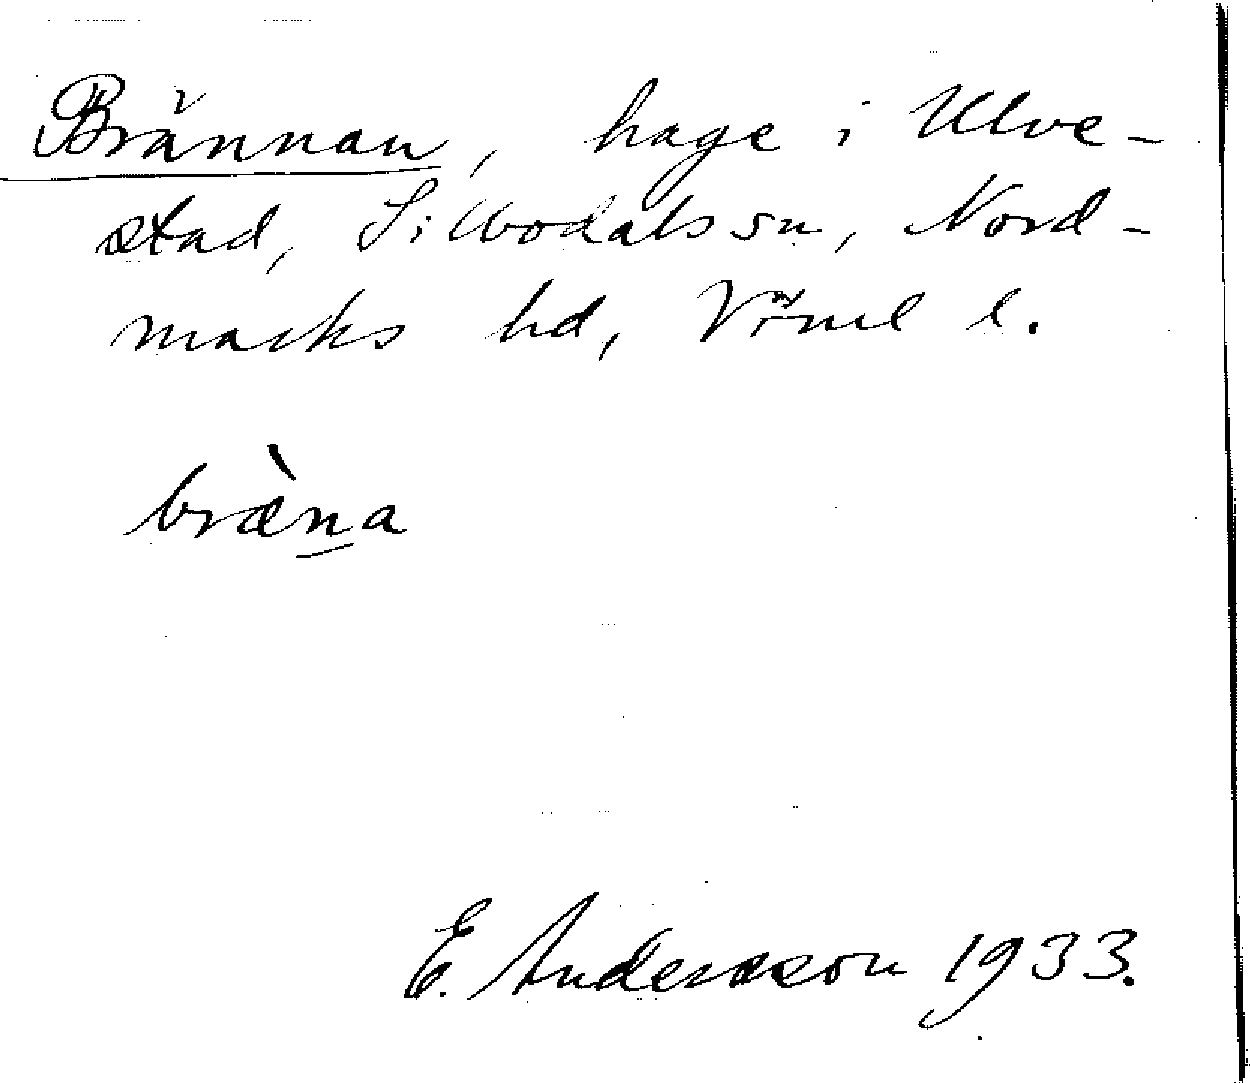 Brännan, hage i Ulve-
stad, Sillbodals sn, Nord-
marks hd, Värml l.
bræ̀n̲a
E. Andersson 1933.